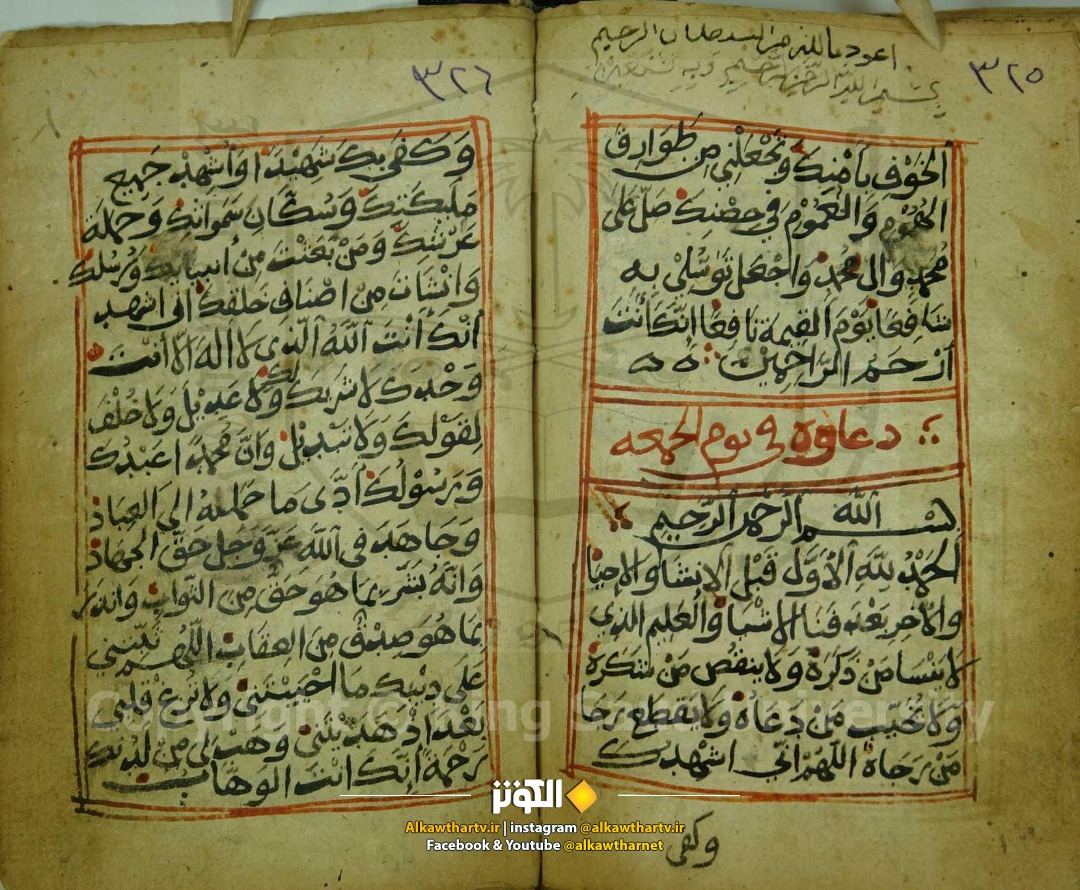 اعوذ بالله من الشيطان الرجيم
بسم الله الرحمن الرحيم وبه نستعين
٣٢٥
الخَوْفِ بِاَمْنِكَ وَتَجْعَلْنِي مِن طَوَارِقِ
الهُمُومِ وَالغُمُومِ فِي حِصْنِكَ صَلِّ عَلى
مُحَمَّدٍ وَالِ مُحَمَّدٍ وَاجْعَل تَوَسُّلِي بِهِ
شَافِعًا يَوْمَ القِيمَةِ نَافِعًا اِنَّكَ اَنْتَ
اَرْحَمُ الرَّاحِمِينَ
دعاوه في يوم الجمعه
بسم الله الرَّحمن الرَّحيم
الحَمْدُ لِلّهِ الاَوَّلِ قَبْلَ الاِنشَا وَالاِحيَا
وَالاخِرِ بَعْدَ فَنَا الاَشْيَا وَالعَلِيمِ الَّذِي
لا يَنْسَا مَنْ ذَكَرَهُ وَلا يَنقُصُ مَن شَكَرَهُ
وَلا يُخَيِّب مَن دَعاهُ وَلا يَقطَع رَجَا
مَن رَجَاهُ اللّهُمَّ اِنِّي اُشْهِدُكَ
وكفى
٣٢٦
وَكَفَى بِكَ شَهِيدًا وَاُشْهِدُ جَمِيعَ
مَلئِكَتِكَ وَسُكَّانِ سَموَاتِكَ وَحَمَلَةِ
عَرْشِكَ وَمَنْ بَعَثْتَ مِن اَنبِيائِكَ وَرُسُلِكَ
وَاَنْشَاتَ مِن اَصْنَافِ خَلقِكَ اَنِّي اَشهَدُ
اَنَّكَ اَنْتَ اللَّهُ الَّذِي لا اِلهَ اِلّا اَنْتَ
وَحْدَكَ لا شَرِيكَ لَكَ وَلا عَدِيلَ وَلا خُلْفَ
لِقَوْلِكَ وَلا تَبْدِيلَ وَاَنَّ مُحَمَّدًا عَبْدُكَ
وَرَسُولُكَ اَدَّى مَا حَمَّلتَهُ اِلى العِبَادِ
وَجَاهَدَ فِي اللَّهِ عَزَّ وَجَلَّ حَقَّ الجِهَادِ
وَاَنَّهُ بَشَّرَ بِمَا هُوَ حَقٌّ مِنَ الثَّوَابِ وَانْذَرَ
بِمَا هُوَ صِدْقٌ مِنَ العِقَابِ اللّهُمَّ ثَبِّتنِي
عَلى دِينِكَ مَا اَحْيَيْتَنِي وَلا تُزِغ قَلبِي
بَعْدَ اِذ هَدَيْتَنِي وَهَبْ لِي مِن لَدُنكَ
رَحْمَةً اِنَّكَ اَنْتَ الوَهَّاب
Copyright © King Saud University
الكوثر
Alkawthartv.ir | instagram @alkawthartv.ir
Facebook & Youtube @alkawtharnet